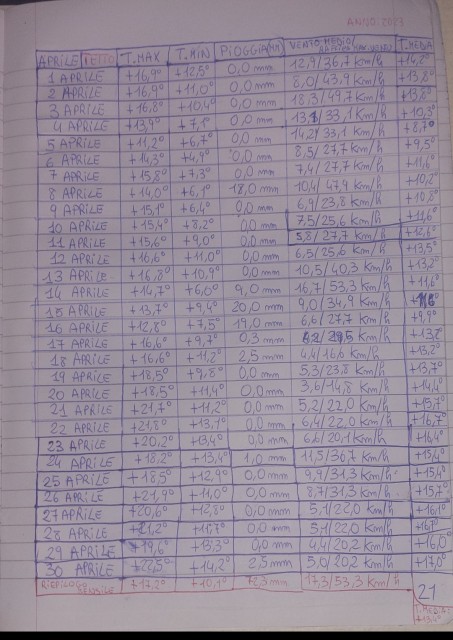 ANNO: 2023
APRILE TETTO T.MAX T.MIN PIOGGIA(MM) VENTO MEDIO/ T.MEDIA
1 APRILE +16,9° +12,5° 0,0 mm 12,9/36,7 Km/h +14,2°
2 APRILE +16,9° +11,0° 0,0 mm 8,0/43,9 Km/h +13,8°
3 APRILE +16,8° +10,4° 0,0 mm 18,3/49,7 Km/h
4 APRILE +13,9° +7,1° 0,0 mm 33,1 Km/h +10,3°
5 APRILE +11,2° +6,7° 0,0 mm 14,2/33,1 Km/h +8,7°
6 APRILE +14,3° +4,9° 0,0 mm 8,5/27,7 Km/h +9,5°
7 APRILE +15,8° +7,3° 0,0 mm 7,4/27,7 Km/h +11,6°
8 APRILE +14,0° +6,1° 18,0 mm 10,4/47,9 Km/h +10,2°
9 APRILE +15,1° +6,4° 0,0 mm 6,9/23,8 Km/h +10,8°
10 APRILE +15,4° +8,2° 0,0 mm 7,5/25,6 Km/h +11,6°
11 APRILE +15,6° +9,0° 0,0 mm 5,8/27,7 Km/h +12,6°
12 APRILE +16,6° +11,0° 0,0 mm 6,5/25,6 Km/h +13,5°
13 APRILE +16,8° +10,9° 0,0 mm 10,5/40,3 Km/h +13,2°
14 APRILE +14,7° +6,0° 9,0 mm 16,7/53,3 Km/h +11,6°
15 APRILE +13,7° +9,4° 20,0 mm 9,0/34,9 Km/h
16 APRILE +12,8° +7,5° 19,0 mm 6,6/27,7 Km/h +9,9°
17 APRILE +16,6° +9,7° 0,3 mm Km/h +13,2°
18 APRILE +16,6° +11,2° 2,5 mm 4,4/16,6 Km/h +13,2°
19 APRILE +18,5° +9,8° 0,0 mm 5,3/23,8 Km/h +13,7°
20 APRILE +18,5° +11,4° 0,0 mm 3,6/14,8 Km/h +14,4°
21 APRILE +21,7° +11,2° 0,0 mm 5,2/22,0 Km/h +15,7°
22 APRILE +21,8° +13,1° 0,0 mm 6,4/22,0 Km/h +16,7°
23 APRILE +20,2° +13,4° 0,0 mm 6,6/20,1 Km/h +16,4°
24 APRILE +18,2° +13,4° 1,0 mm 11,5/36,7 Km/h +15,4°
25 APRILE +18,5° +12,9° 0,0 mm 9,9/31,3 Km/h +15,4°
26 APRILE +21,9° +11,0° 0,0 mm 8,7/31,3 Km/h +15,7°
27 APRILE +20,6° +12,8° 0,0 mm 5,1/22,0 Km/h +16,1°
28 APRILE +21,2° +11,7° 0,0 mm 5,1/22,0 Km/h +16,1°
29 APRILE +19,6° +13,3° 0,0 mm 4,4/20,2 Km/h +16,0°
30 APRILE +22,5° +14,2° 2,5 mm 5,0/20,2 Km/h +17,0°
RIEPILOGO MENSILE +17,2° +10,1° 72,3 mm 17,3/53,3 Km/h 21
T.MEDIA:
+13,4°